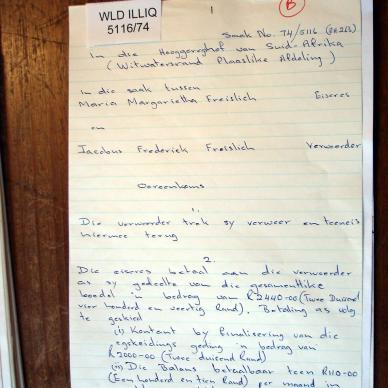 WLD ILLIQ
5116/74
B
1
Saak No. 74/5116
In die Hooggeregshof van Suid-Afrika
(Witwatersrand Plaaslike Afdeling)
In die saak tussen
Maria Margarietha Freislich Eiseres
en
Jacobus Frederick Freislich Verweerder
Ooreenkoms
1.
Die verweerder trek sy verweer en teeneis
hiermee terug
2.
Die eiseres betaal aan die verweerder
as sy gedeelte van die gesamentlike
boedel 'n bedrag van R2440-00 (Twee Duisend
vier honderd en veertig Rand). Betaling as volg
te geskied
(i) Kontant by finalisering van die
egskeidings geding 'n bedrag van
R2000-00 (Twee duisend Rand)
(ii) Die Balans betaalbaar teen R110-00
(Een honderd en tien Rand) per maand in